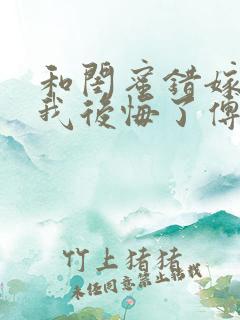 和閨蜜錯嫁
我後悔了傅
竹上猪猪
未经同意禁止转载